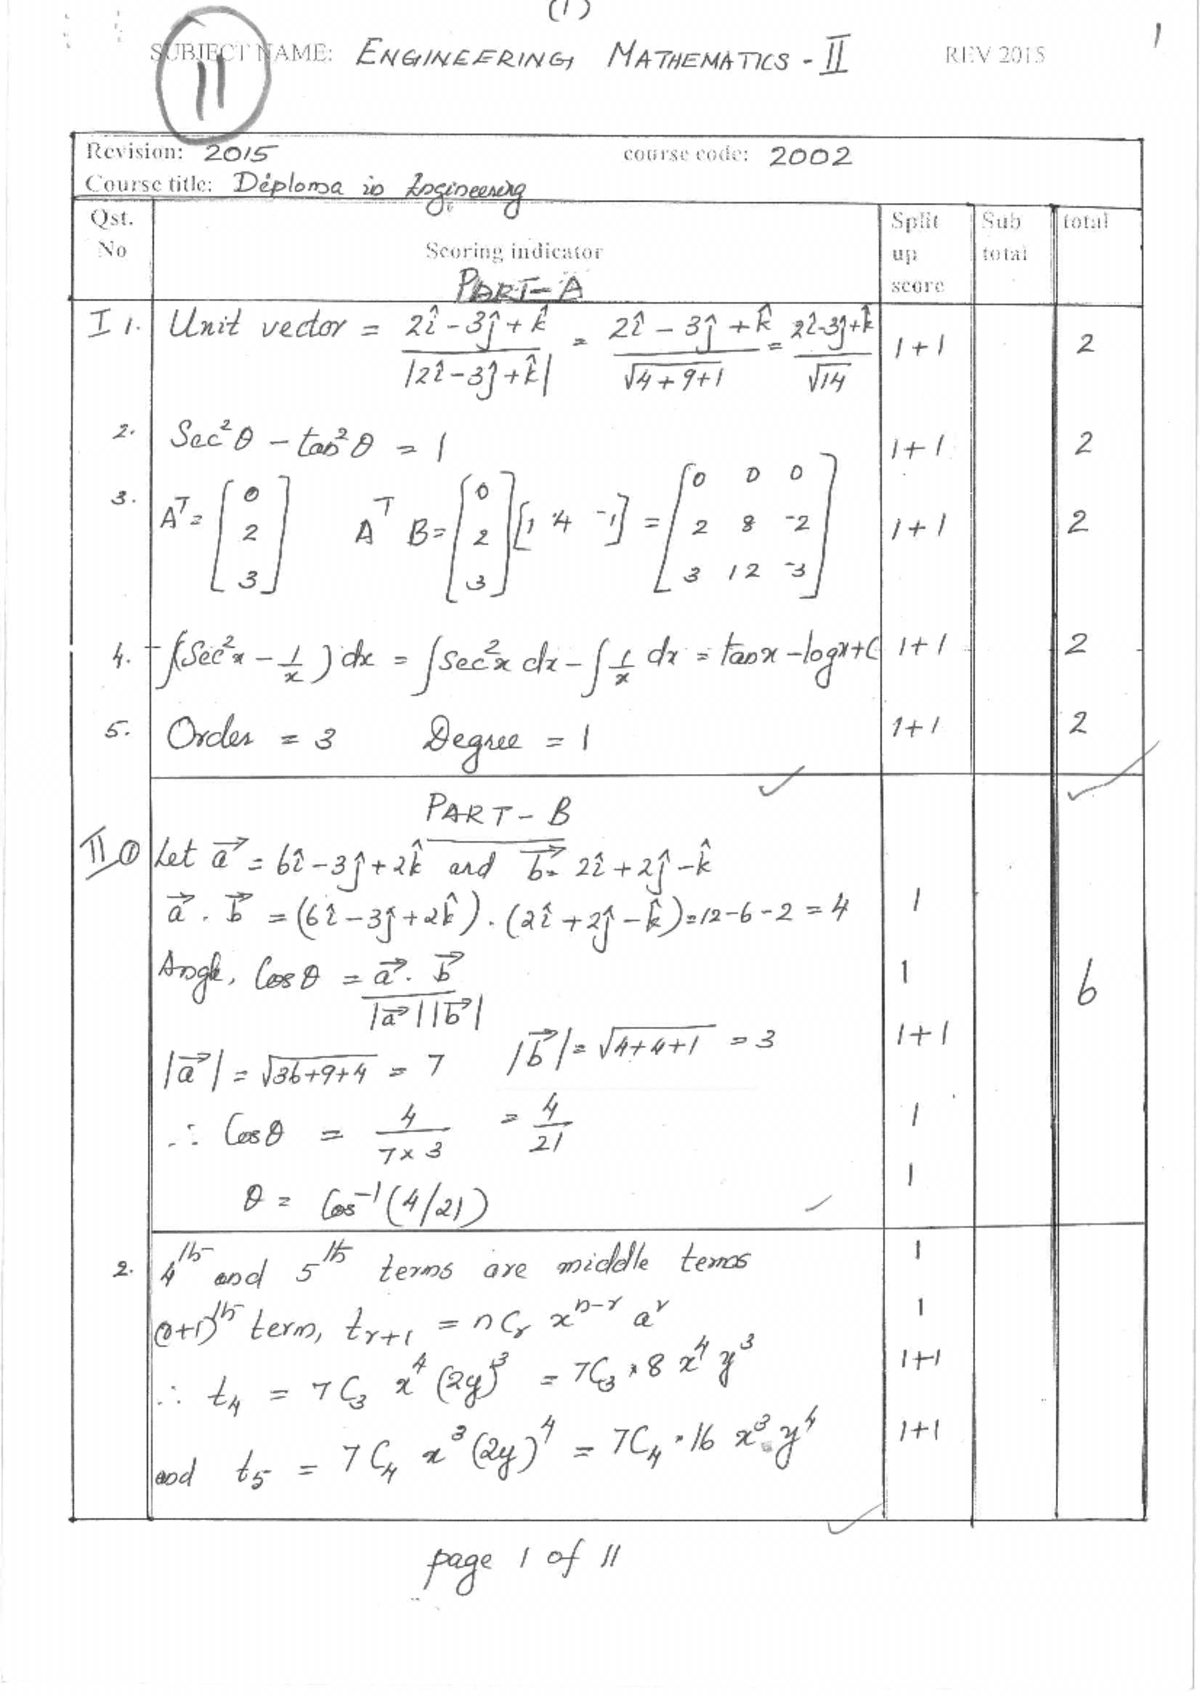 (1)
SUBJECT NAME: ENGINEERING MATHEMATICS - II REV 2015 1
11
Revision: 2015 course code: 2002
Course title: Diploma in Engineering
Qst. No Scoring indicator Split up score Sub total total
PART-A
I 1. Unit vector = (2î - 3ĵ + k̂)/|2î - 3ĵ + k̂| = (2î - 3ĵ + k̂)/√(4+9+1) = (2î-3ĵ+k̂)/√14 1+1 2
2. Sec²θ - tan²θ = 1 1+1 2
3. Aᵀ = [0 2 3] Aᵀ B = [0 2 3] [1 4 -1] = [0 0 0 2 8 -2 3 12 -3] 1+1 2
4. ∫(Sec²x - 1/x) dx = ∫Sec²x dx - ∫1/x dx = tanx - logx + C 1+1 2
5. Order = 3 Degree = 1 1+1 2
PART - B
II ① Let a⃗ = 6î - 3ĵ + 2k̂ and b⃗ = 2î + 2ĵ - k̂
a⃗ . b⃗ = (6î - 3ĵ + 2k̂) . (2î + 2ĵ - k̂) = 12 - 6 - 2 = 4 1
Angle, Cos θ = a⃗ . b⃗/|a⃗||b⃗| 1 6
|a⃗| = √(36+9+4) = 7 |b⃗| = √(4+4+1) = 3 1+1
∴ Cos θ = 4/(7×3) = 4/21 1
θ = Cos⁻¹(4/21) 1
2. 4th and 5th terms are middle terms 1
(r+1)th term, tᵣ₊₁ = nCᵣ xⁿ⁻ʳ aʳ 1
∴ t₄ = 7C₃ x⁴ (2y)³ = 7C₃ * 8 x⁴ y³ 1+1
and t₅ = 7C₄ x³ (2y)⁴ = 7C₄ * 16 x³ y⁴ 1+1
page 1 of 11